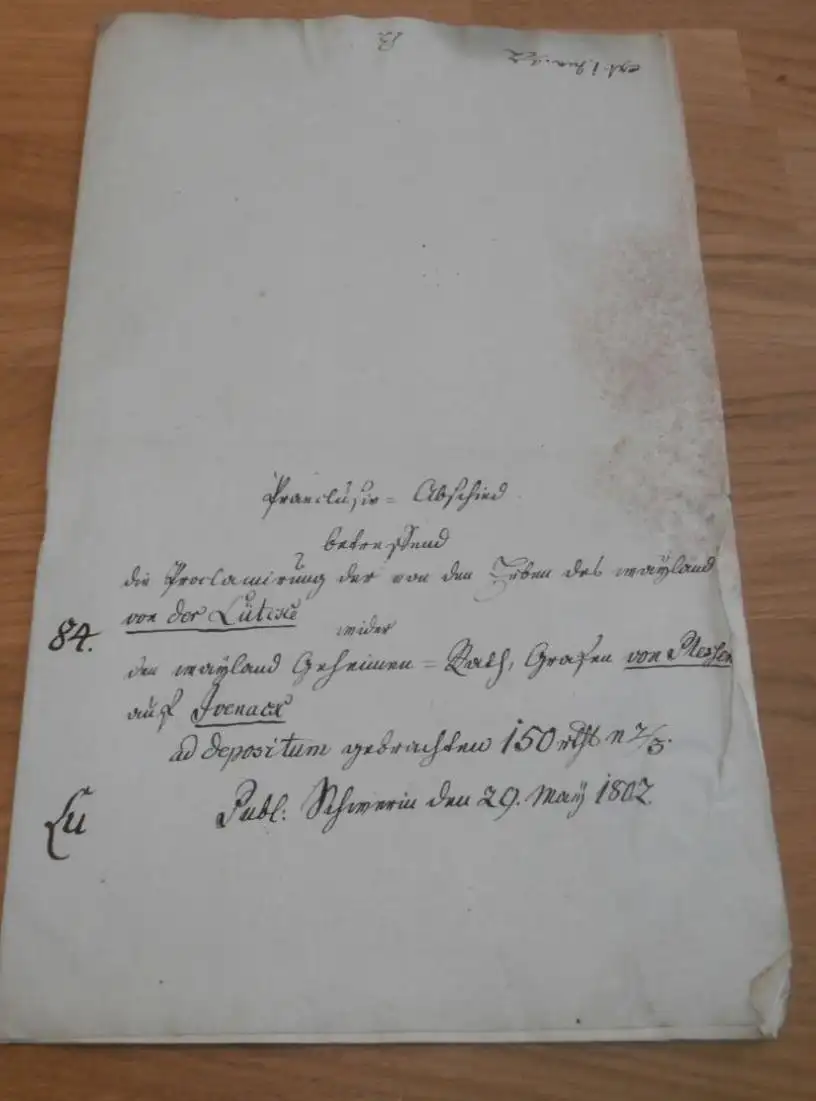 Praeclusiv = Abschied
betreffend
die Proclamirung der von den Erben des wayland
von der Lütcke
wider
84.
den wayland Geheimen = Rath, Grafen von Plessen
auf Ivenack
ad depositum gebrachten 150 rthl n 2/3.
Publ: Schwerin den 29. May 1802.
Lu